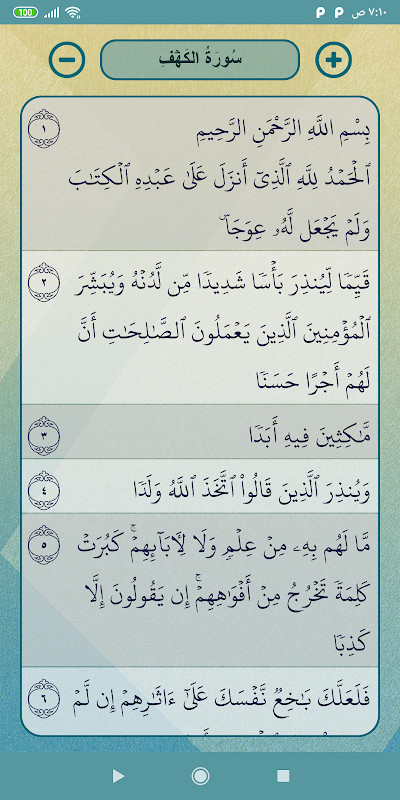 100
٧:١٠ ص
سُورَةُ الكَهْفِ
بِسْمِ اللَّهِ الرَّحْمَنِ الرَّحِيمِ ١
ٱلْحَمْدُ لِلَّهِ ٱلَّذِىٓ أَنزَلَ عَلَىٰ عَبْدِهِ ٱلْكِتَـٰبَ
وَلَمْ يَجْعَل لَّهُۥ عِوَجَاۜ
قَيِّمًا لِّيُنذِرَ بَأْسًا شَدِيدًا مِّن لَّدُنْهُ وَيُبَشِّرَ ٢
ٱلْمُؤْمِنِينَ ٱلَّذِينَ يَعْمَلُونَ ٱلصَّـٰلِحَـٰتِ أَنَّ
لَهُمْ أَجْرًا حَسَنًا
مَّـٰكِثِينَ فِيهِ أَبَدًا ٣
وَيُنذِرَ ٱلَّذِينَ قَالُوا۟ ٱتَّخَذَ ٱللَّهُ وَلَدًا ٤
مَّا لَهُم بِهِۦ مِنْ عِلْمٍ وَلَا لِـَٔابَآئِهِمْ ۚ كَبُرَتْ ٥
كَلِمَةً تَخْرُجُ مِنْ أَفْوَٰهِهِمْ ۚ إِن يَقُولُونَ إِلَّا
كَذِبًا
فَلَعَلَّكَ بَـٰخِعٌ نَّفْسَكَ عَلَىٰٓ ءَاثَـٰرِهِمْ إِن لَّمْ ٦